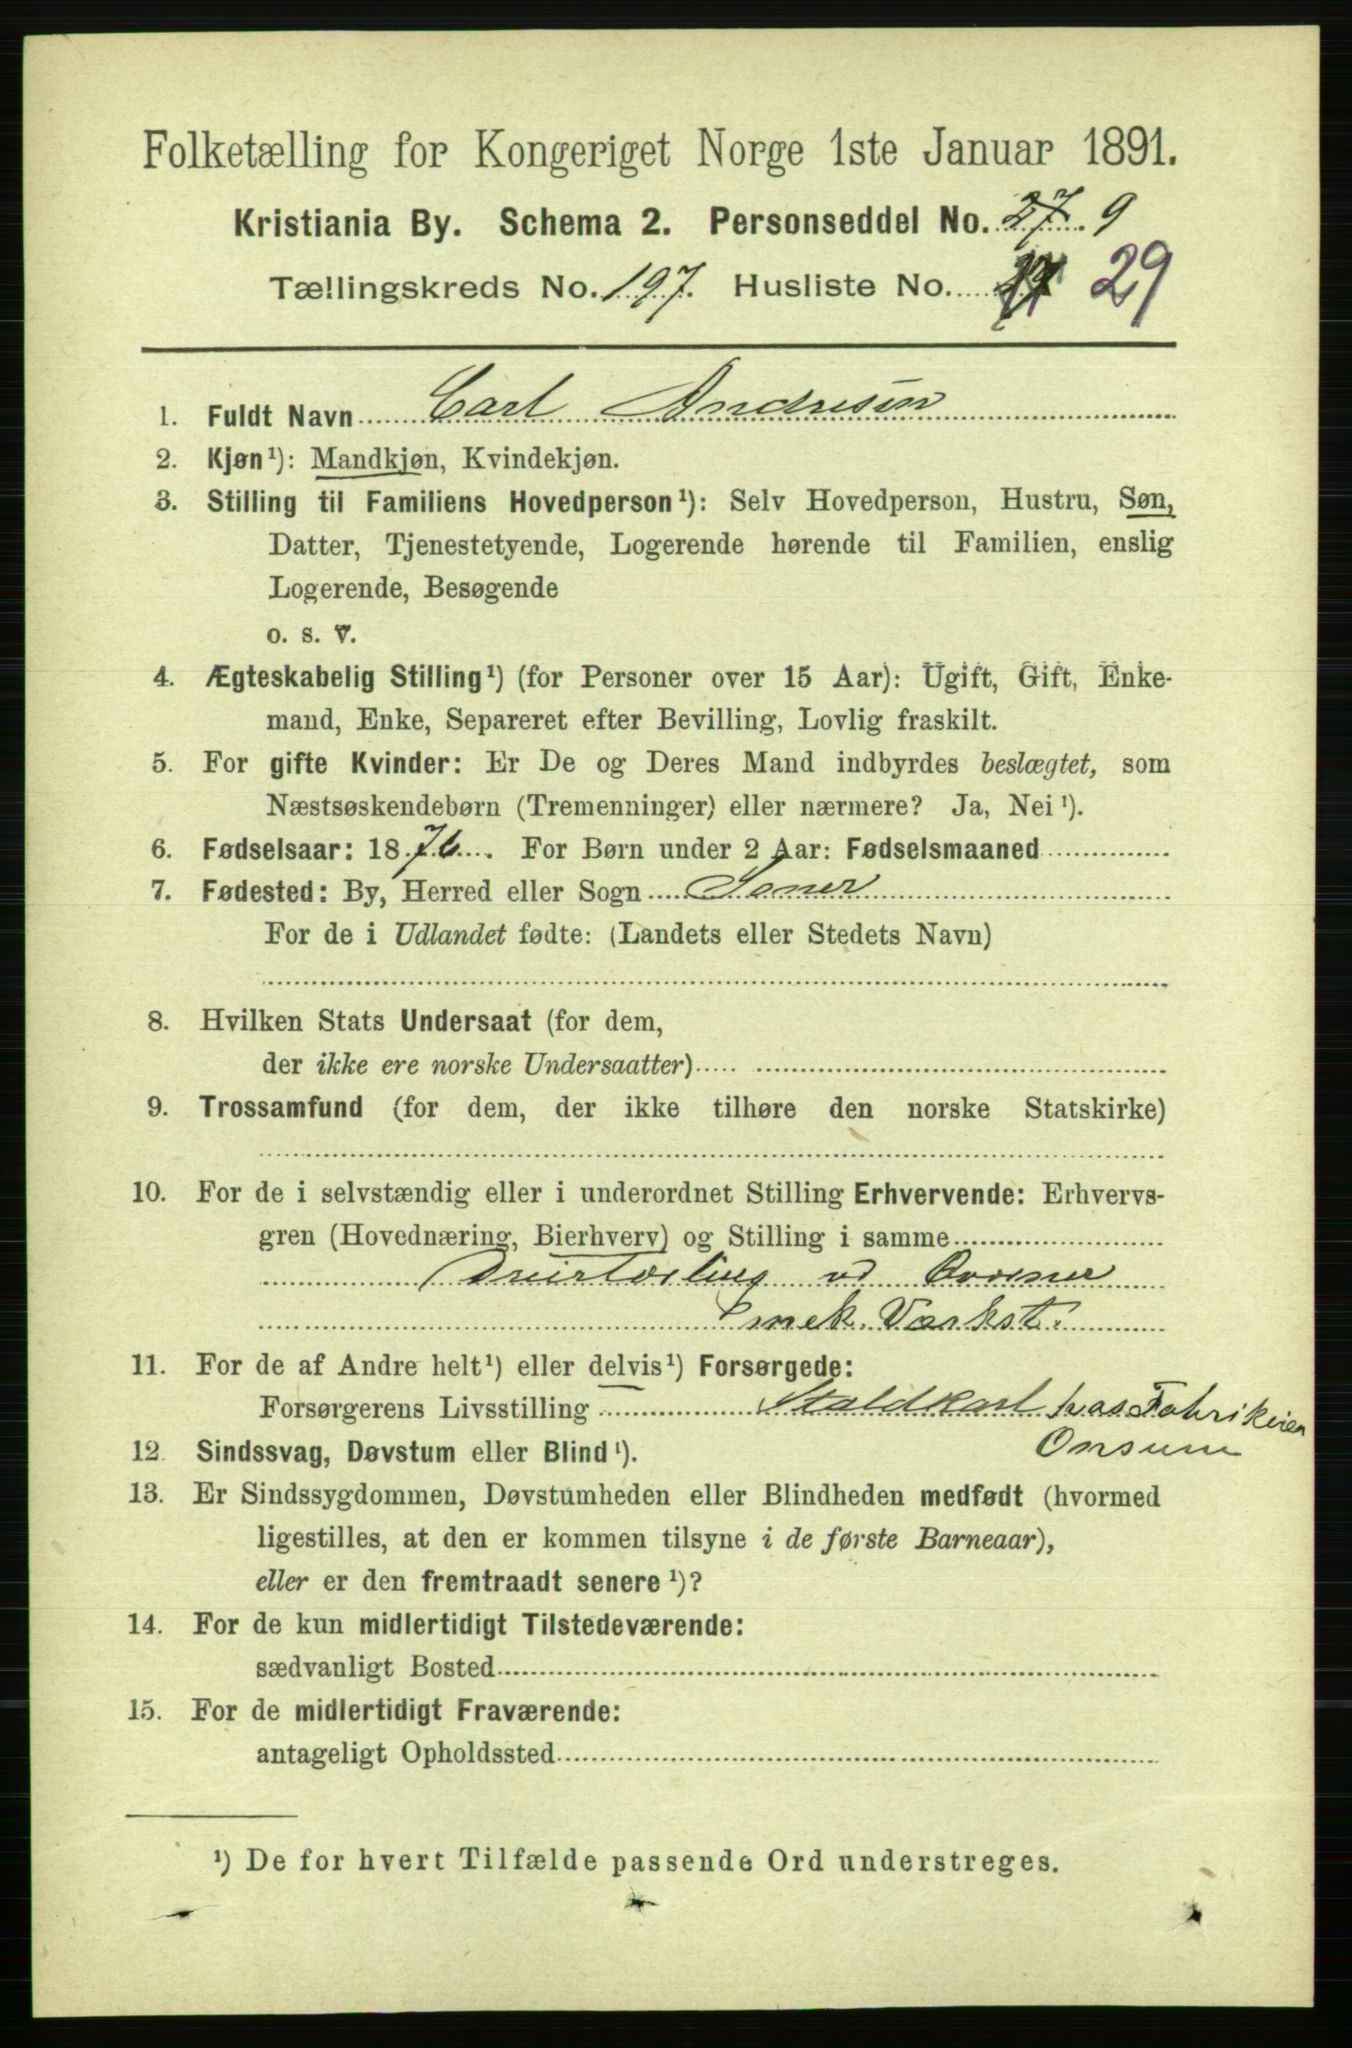 Folketælling for Kongeriget Norge 1ste Januar 1891.
Kristiania By. Schema 2. Personseddel No. 27. 9
Tællingskreds No. 197. Husliste No. 29
1. Fuldt Navn Carl Andresen
2. Kjøn¹): Mandkjøn, Kvindekjøn.
3. Stilling til Familiens Hovedperson¹): Selv Hovedperson, Hustru, Søn,
Datter, Tjenestetyende, Logerende hørende til Familien, enslig
Logerende, Besøgende
o. s. v.
4. Ægteskabelig Stilling¹) (for Personer over 15 Aar): Ugift, Gift, Enke-
mand, Enke, Separeret efter Bevilling, Lovlig fraskilt.
5. For gifte Kvinder: Er De og Deres Mand indbyrdes beslægtet, som
Næstsøskendebørn (Tremenninger) eller nærmere? Ja, Nei¹).
6. Fødselsaar: 1876. For Børn under 2 Aar: Fødselsmaaned
7. Fødested: By, Herred eller Sogn
For de i Udlandet fødte: (Landets eller Stedets Navn)
8. Hvilken Stats Undersaat (for dem,
der ikke ere norske Undersaatter)
9. Trossamfund (for dem, der ikke tilhøre den norske Statskirke)
10. For de i selvstændig eller i underordnet Stilling Erhvervende: Erhvervs-
gren (Hovednæring, Bierhverv) og Stilling i samme
mek. Værkst.
11. For de af Andre helt¹) eller delvis¹) Forsørgede:
Forsørgerens Livsstilling Staldkarl hos Fabrikeier
Onsum
12. Sindssvag, Døvstum eller Blind¹).
13. Er Sindssygdommen, Døvstumheden eller Blindheden medfødt (hvormed
ligestilles, at den er kommen tilsyne i de første Barneaar),
eller er den fremtraadt senere¹)?
14. For de kun midlertidigt Tilstedeværende:
sædvanligt Bosted
15. For de midlertidigt Fraværende:
antageligt Opholdssted
¹) De for hvert Tilfælde passende Ord understreges.